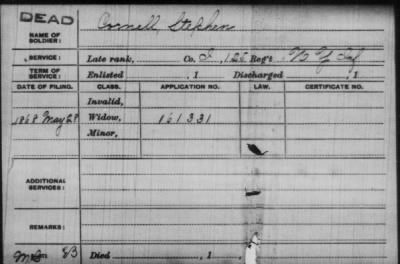 DEAD
Cornell, Stephen
NAME OF
SOLDIER:
SERVICE: Late rank, Co. I, 125 Reg't N Y Inf
TERM OF
SERVICE: Enlisted , 1 Discharged , 1
DATE OF FILING. CLASS. APPLICATION NO. LAW. CERTIFICATE NO.
Invalid,
1868 May 28 Widow, 161331
Minor,
ADDITIONAL
SERVICES:
REMARKS:
83 Died , 1